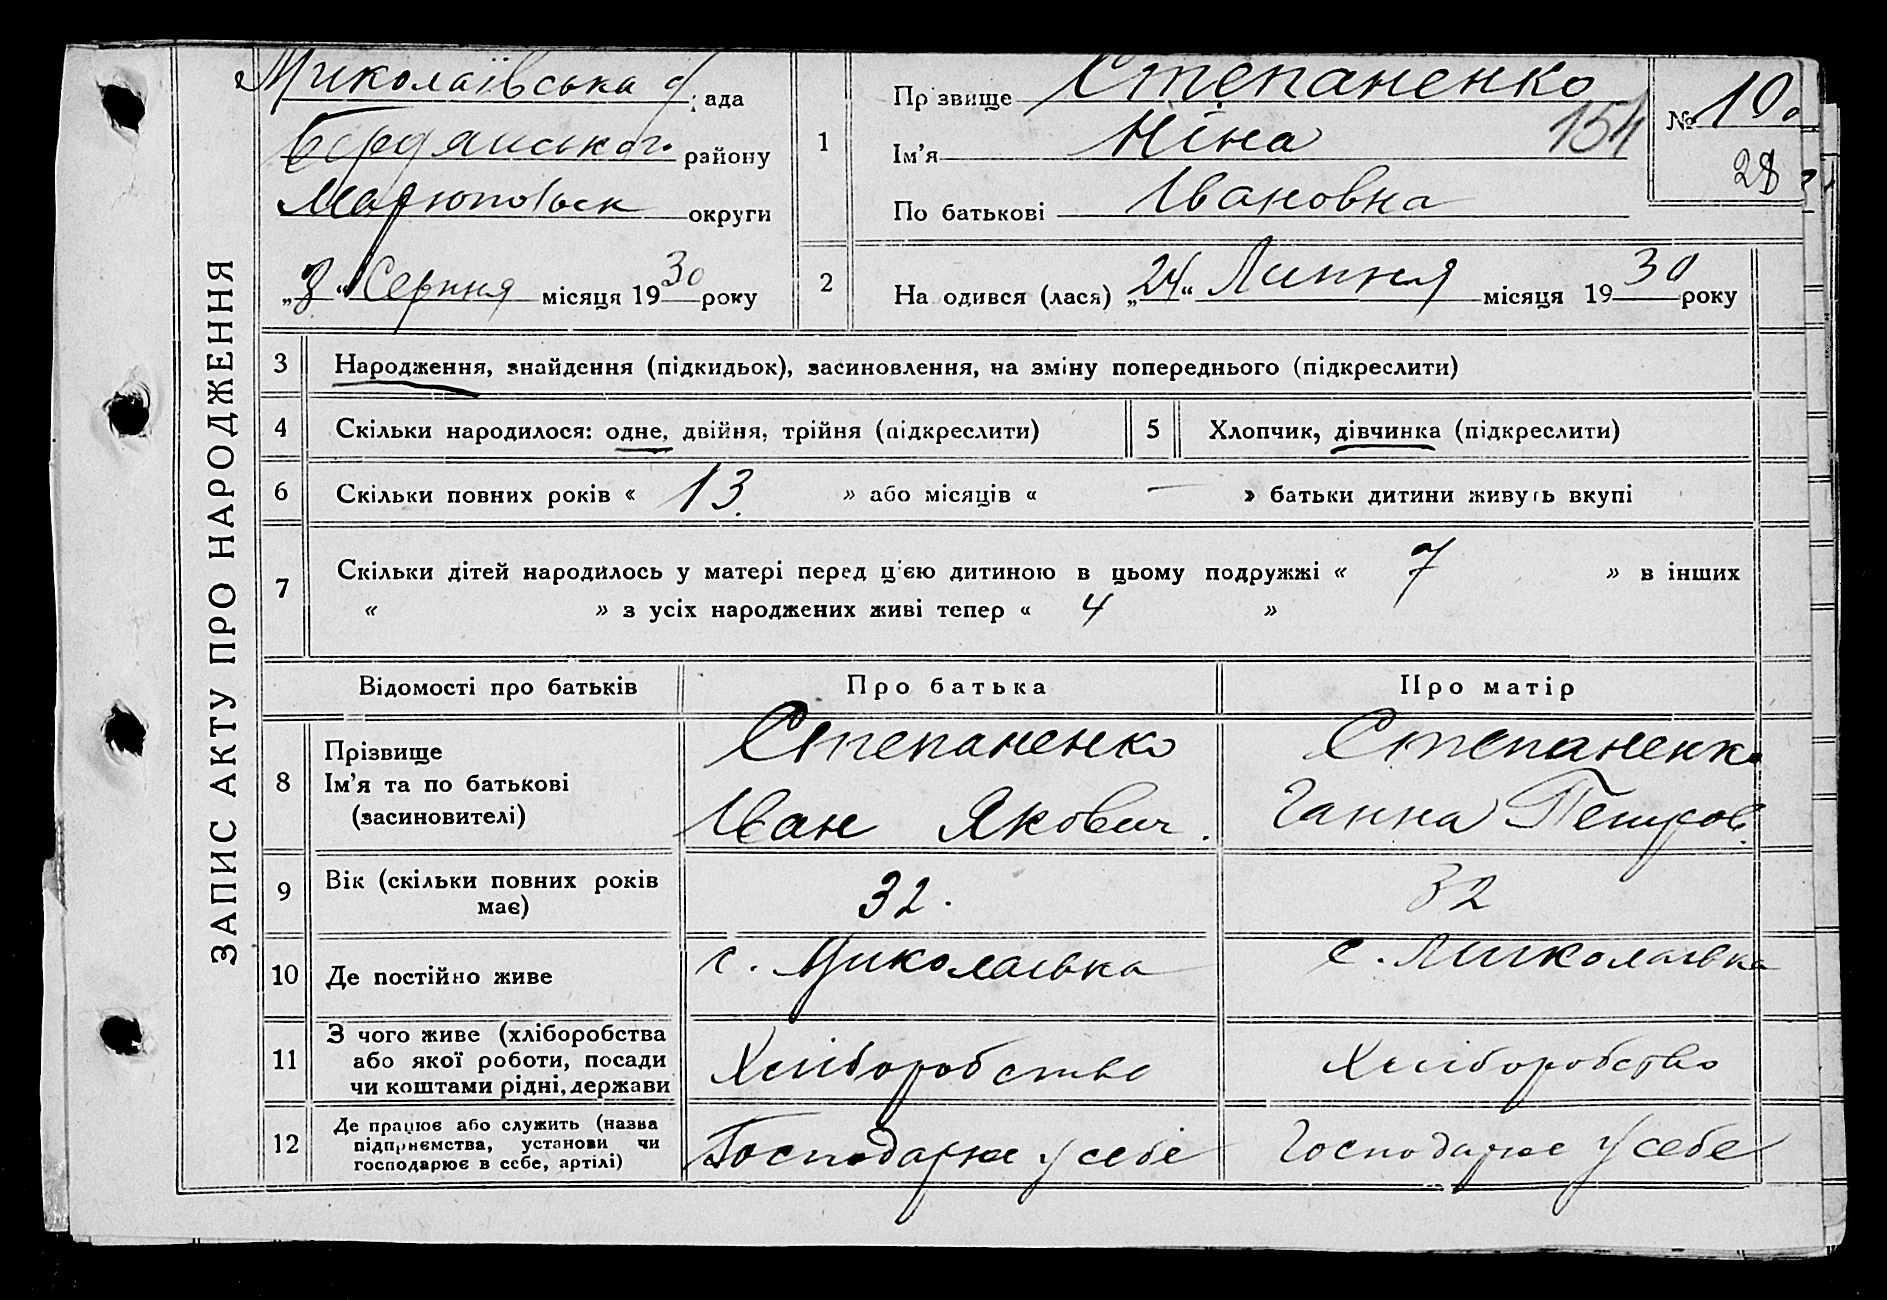 ЗАПИС АКТУ ПРО НАРОДЖЕННЯ
Миколаївська рада
Бердянського району
Маріюпольск округи
„3“ Серпня місяця 1930 року
1
Прізвище Степаненко
Ім'я Ніна 154
По батькові Івановна
№ 19
28
2
На одився (лася) „24“ Липня місяця 1930 року
3 Народження, знайдення (підкидьок), засиновлення, на зміну попереднього (підкреслити)
4 Скільки народилося: одне, двійня, трійня (підкреслити) 5 Хлопчик, дівчинка (підкреслити)
6 Скільки повних років « 13. » або місяців « — » батьки дитини живуть вкупі
7 Скільки дітей народилось у матері перед ц'єю дитиною в цьому подружжі « 7 » в інших
« » з усіх народжених живі тепер « 4 »
Відомості про батьків Про батька Про матір
8 Прізвище Ім'я та по батькові (засиновителі)
Степаненко Степаненко
Іван Якович. Ганна Петров.
9 Вік (скільки повних років має) 32. 32
10 Де постійно живе с. Миколаївка с. Миколаївка
11 З чого живе (хліборобства або якої роботи, посади чи коштами рідні, держави Хліборобство Хліборобство
12 Де працює або служить (назва підприємства, установи чи господарює в себе, артілі) Господарює у себе Господарює у себе